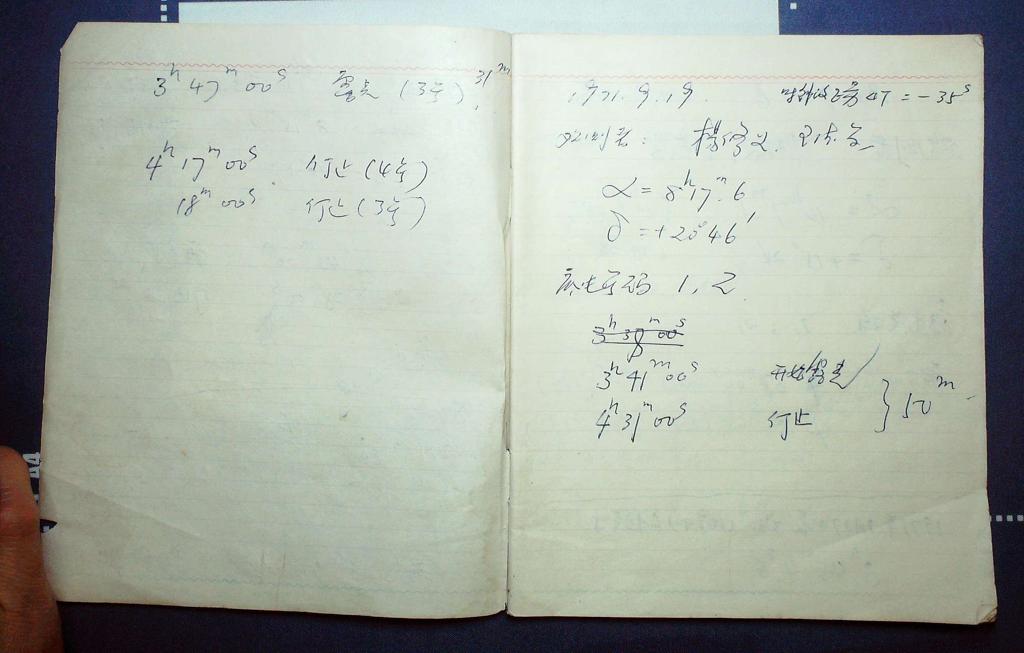 3ʰ 47ᵐ 00ˢ 露光 (3号) 31ᵐ.
4ʰ 17ᵐ 00ˢ 停止 (4号)
18ᵐ 00ˢ 停止 (3号)
1971.9.19. ΔT = -35ˢ
观测者: 杨修义
α = 8ʰ17ᵐ.6
δ = +20°46′
底片号码 1, 2
3ʰ 38ᵐ 00ˢ
3ʰ 41ᵐ 00ˢ 开始露光
4ʰ 31ᵐ 00ˢ 停止 } 50ᵐ